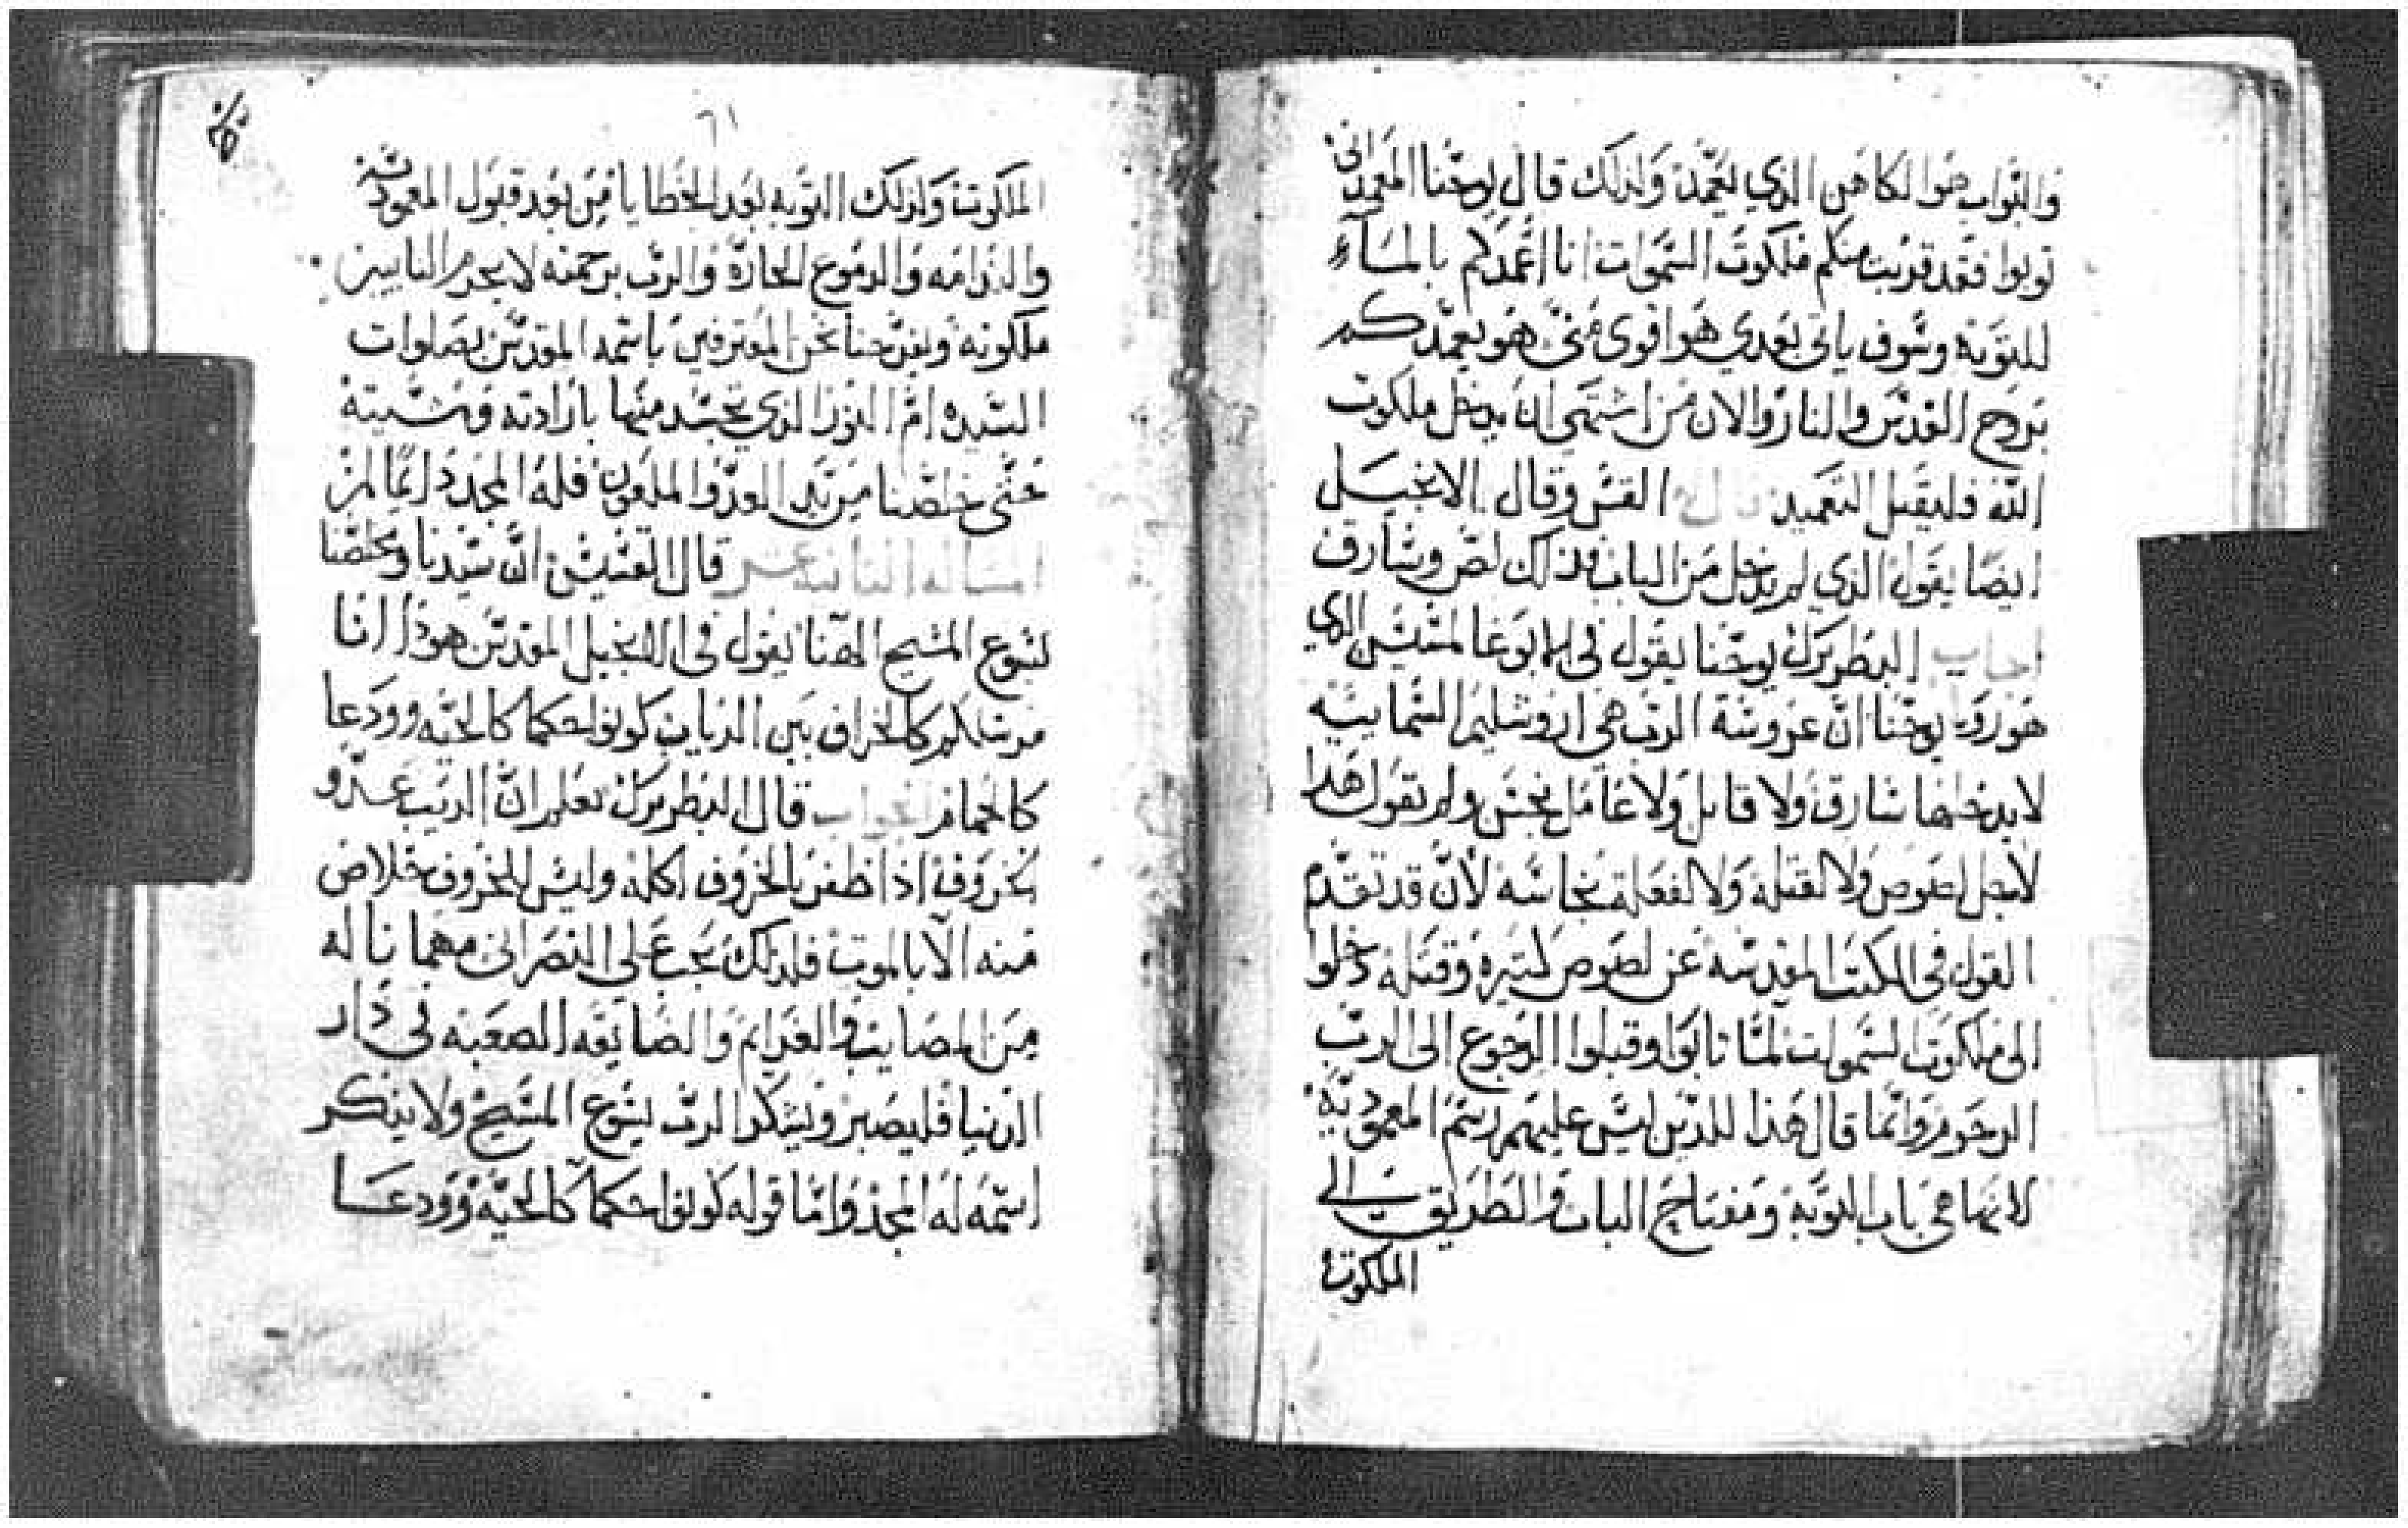 والبواب هوا الكاهن الذي يعمد ولذلك قال يوحنا المعمداني
توبوا فقد قربت منكم ملكوت السموات انا اعمدكم بالماء
للتوبة وسوف ياتي بعدي هوا اقوي مني هو يعمدكم
بروح القدس والنار والان من اشتهى ان يدخل ملكوت
الله فليقبل التعميد القس وقال الانجيل
ايضا يقول الذي لم يدخل من الباب فذلك لص وسارق
اجاب البطريرك يوحنا يقول في الابوغالمسيس الذي
هو يوحنا ان عروسة الرب هي اروشليم السمايية
لا يدخلها سارق ولا قاتل ولا عامل نجس ولم تقول هذا
لاجل لصوص ولا لقتله ولا لفعلة نجاسه لان قد تقدم
القول في الكتب المقدسه عن لصوص كثيره وقتله دخلوا
الى ملكوت السموات لما تابوا وقبلوا الرجوع الى الرب
الرحوم وانما قال هذا للذين ليس عليهم رسم المعمودية
لانها هي باب التوبة ومفتاح الباب والطريق الي
الملكوت
٦١
الملكوت ولذلك التوبه بعد الخطايا من بعد قبول المعموديه
والندامه والدموع الحارة والرب برحمته لا يحرم التايبين
ملكوته ويفرحنا نحن المعترفين باسمه المقدس بصلوات
السيده ام النور الذي تجسد منها بارادته ومشيته
حتى خلصنا من يد العدوا الملعون فله المجد دايما امين
المسالة الثانية عشر قال القسيس ان سيدنا ومخلصنا
يسوع المسيح الهنا يقول في الانجيل المقدس هوذا انا
مرسلكم كالخراف بين الدياب كونوا حكما كالحيه وودعا
كالحمام الجواب قال البطريرك نعلم ان الديب عدو
الخروف اذا ظفر بالخروف اكله وليس للخروف خلاص
منه الا بالموت فلذلك يجب على النصراني مهما ناله
من المصايب والغرايم والضايقه الصعبه في دار
الدنيا فليصبر ويشكر الرب يسوع المسيح ولا ينكر
اسمه له المجد واما قوله كونوا حكما كالحيه وودعا